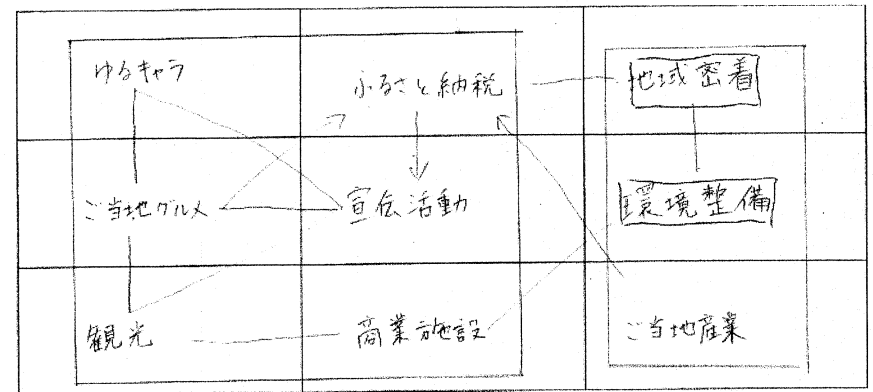 ゆるキャラ ふるさと納税 地域密着
ご当地グルメ 宣伝活動 環境整備
観光 商業施設 ご当地産業